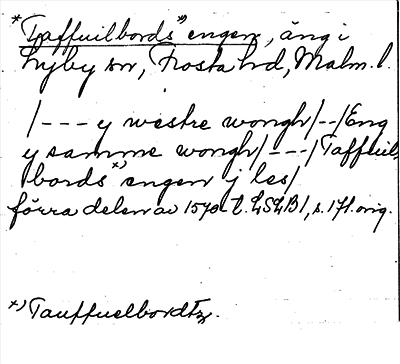 *Taffuilbords x) engen, äng i
Lyby sn, Frosta hd, Malm. l.
/--- y westre wongh/--/Eng
y samme wongh/---/Taffuil-
bords x) engen j les/
förra delen av 1570-t. LSLB1, s. 171. orig.
x) Tauffuelbordtz.